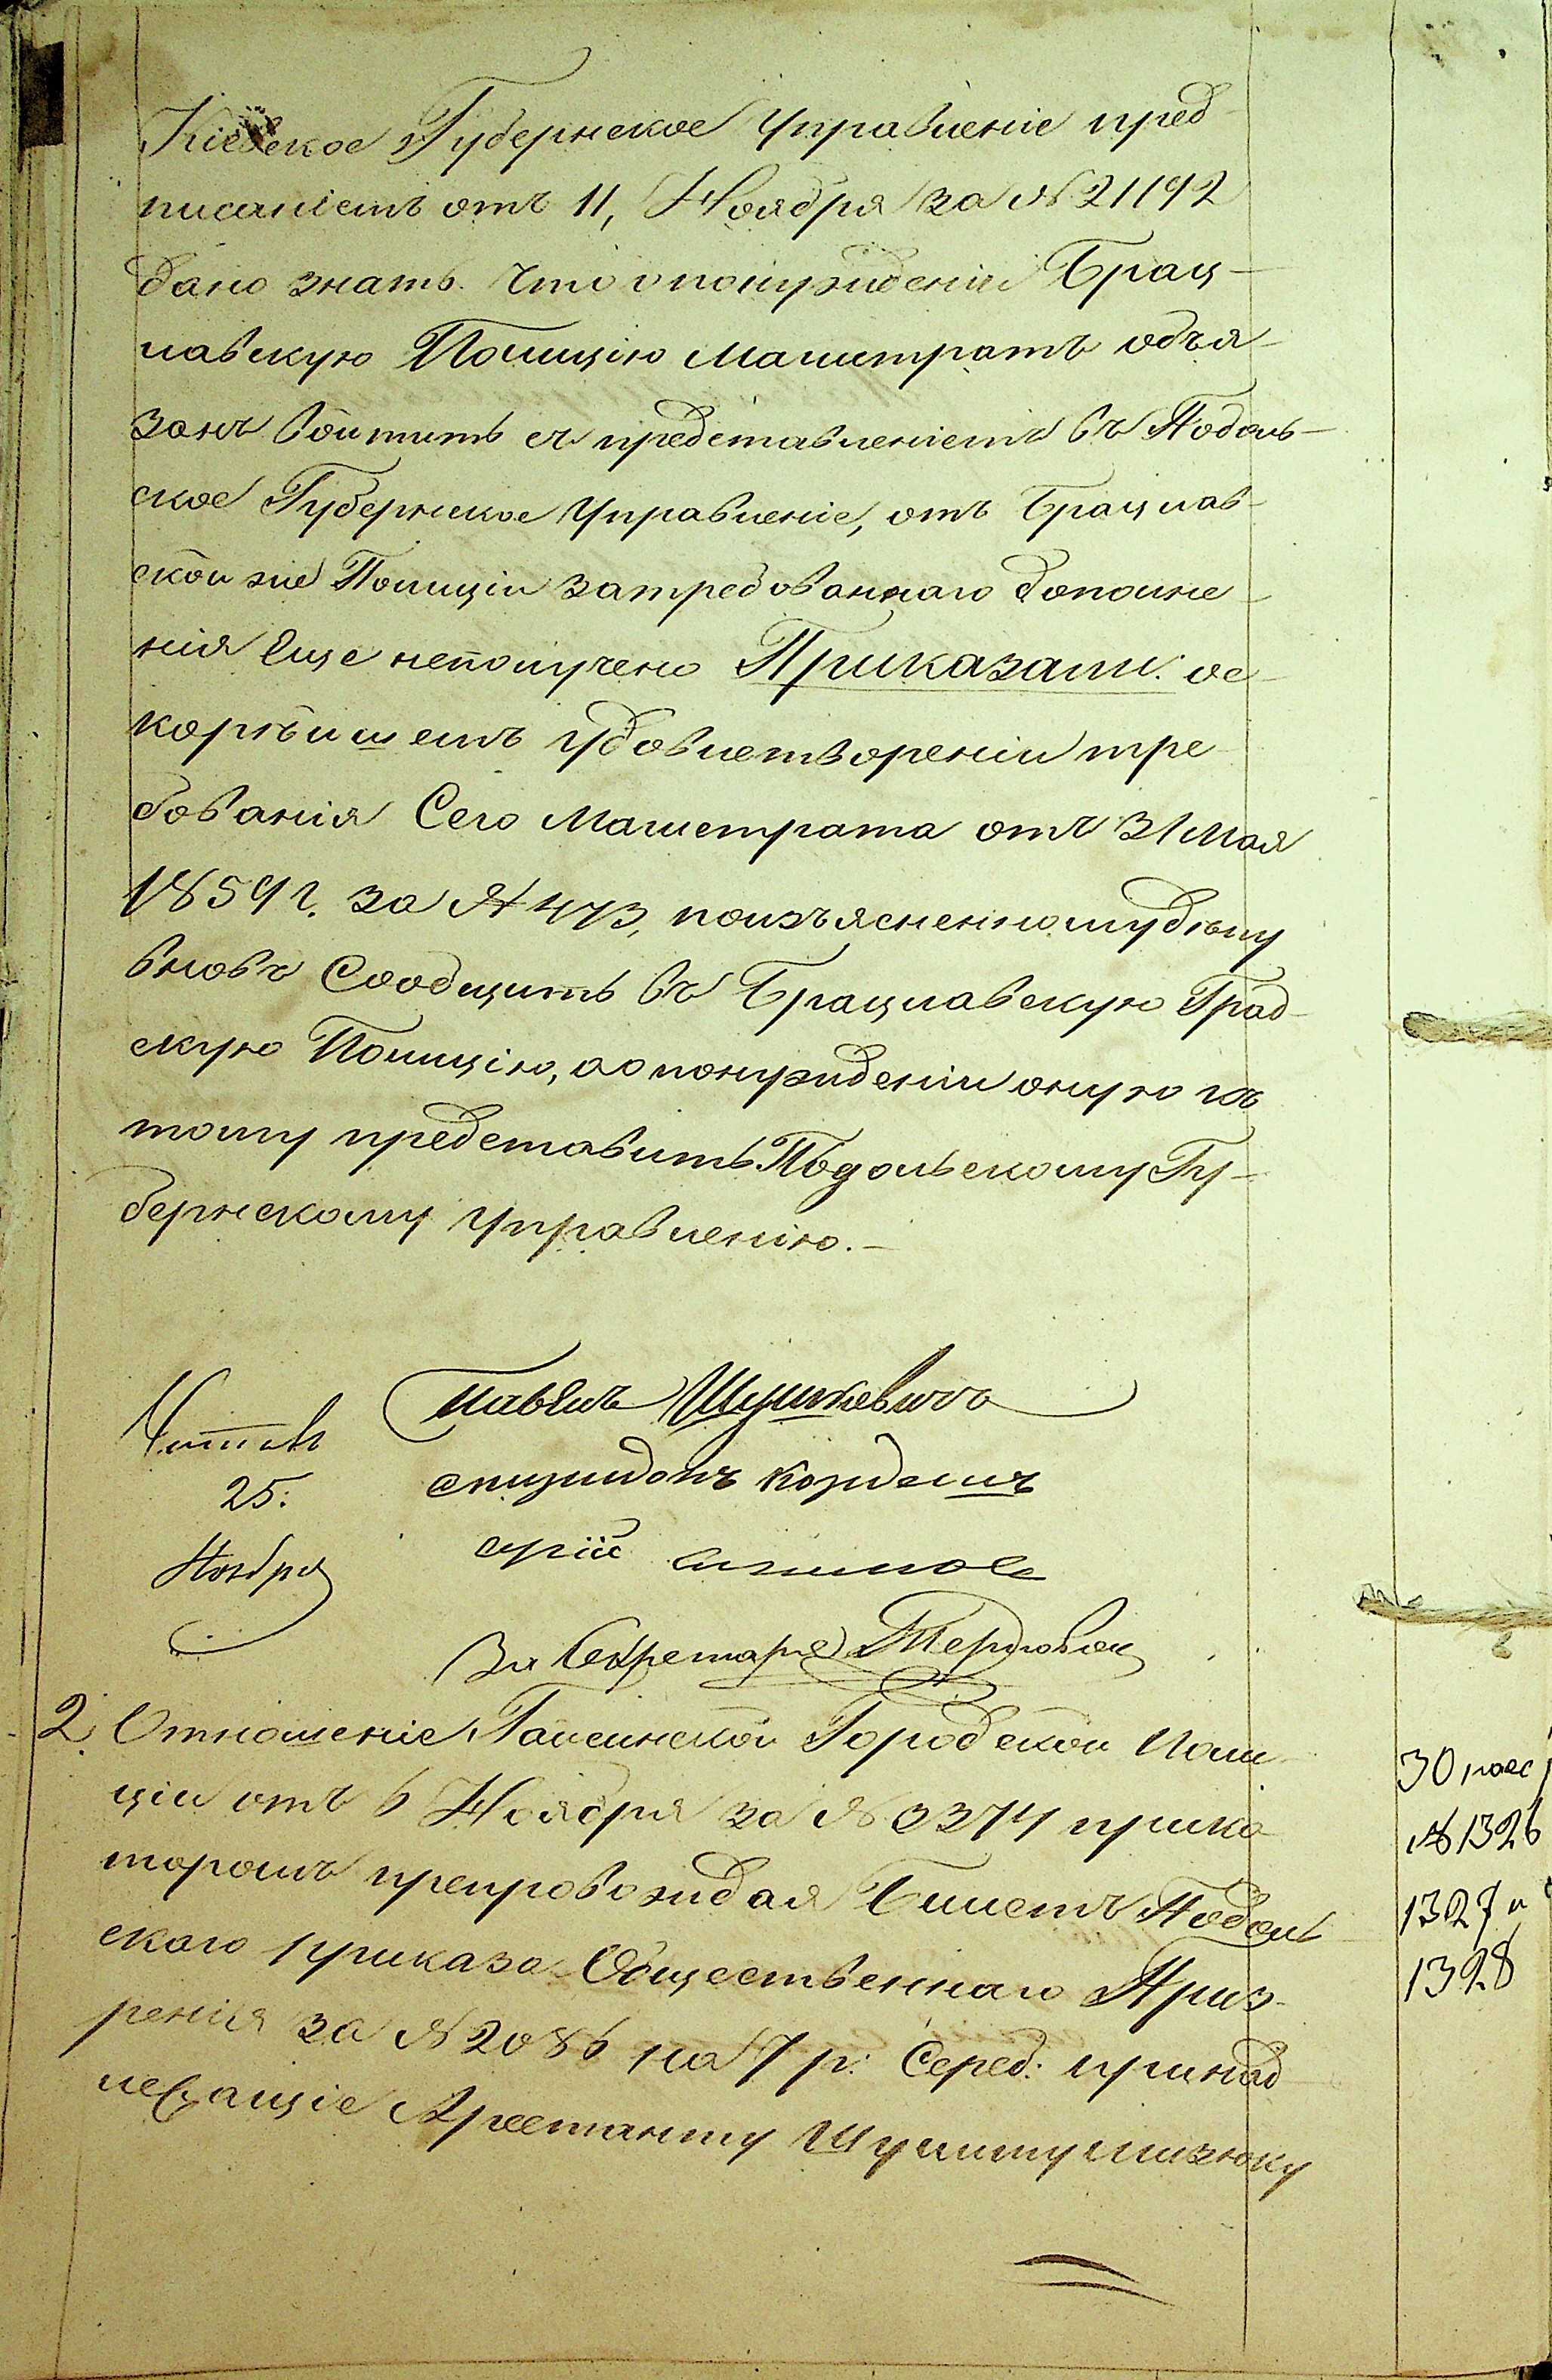 Кіевское Губернское Управленіе пред-
писаніемъ отъ 11, Ноября за № 21192
дано знать. Что о понужденіи Брац-
лавскую Полицію Магистратъ обя-
занъ войтить съ представленіемъ въ Подоль-
ское Губернское Управленіе, отъ Брацлав-
ской же Полиціи затребованнаго дополне-
нія еще неполучено Приказали: о с-
корѣйшемъ удовлетвореніи тре-
бованія Сего Магистрата отъ 31 Мая
1859 г. за № 473, поизъясненному дѣлу
вновь Сообщить въ Брацлавскую Град-
скую Полицію, а о понужденіи оную къ
тому представить Подольскому Гу-
бернскому Управленію.-
Павелъ
Читалъ
25.
Спиридонъ
Ноября
За Секретаря
2. Отношеніе Гайсинской Городской Поли-
ціи отъ 6 Ноября за № 3374 прико-
30
торомъ препровождая Билетъ Подоль
№ 1326
скаго приказа Общественнаго Приз-
1327 и
ренія за № 2086 на 7 р: Серед: принад-
1328
лежащіе Арестанту